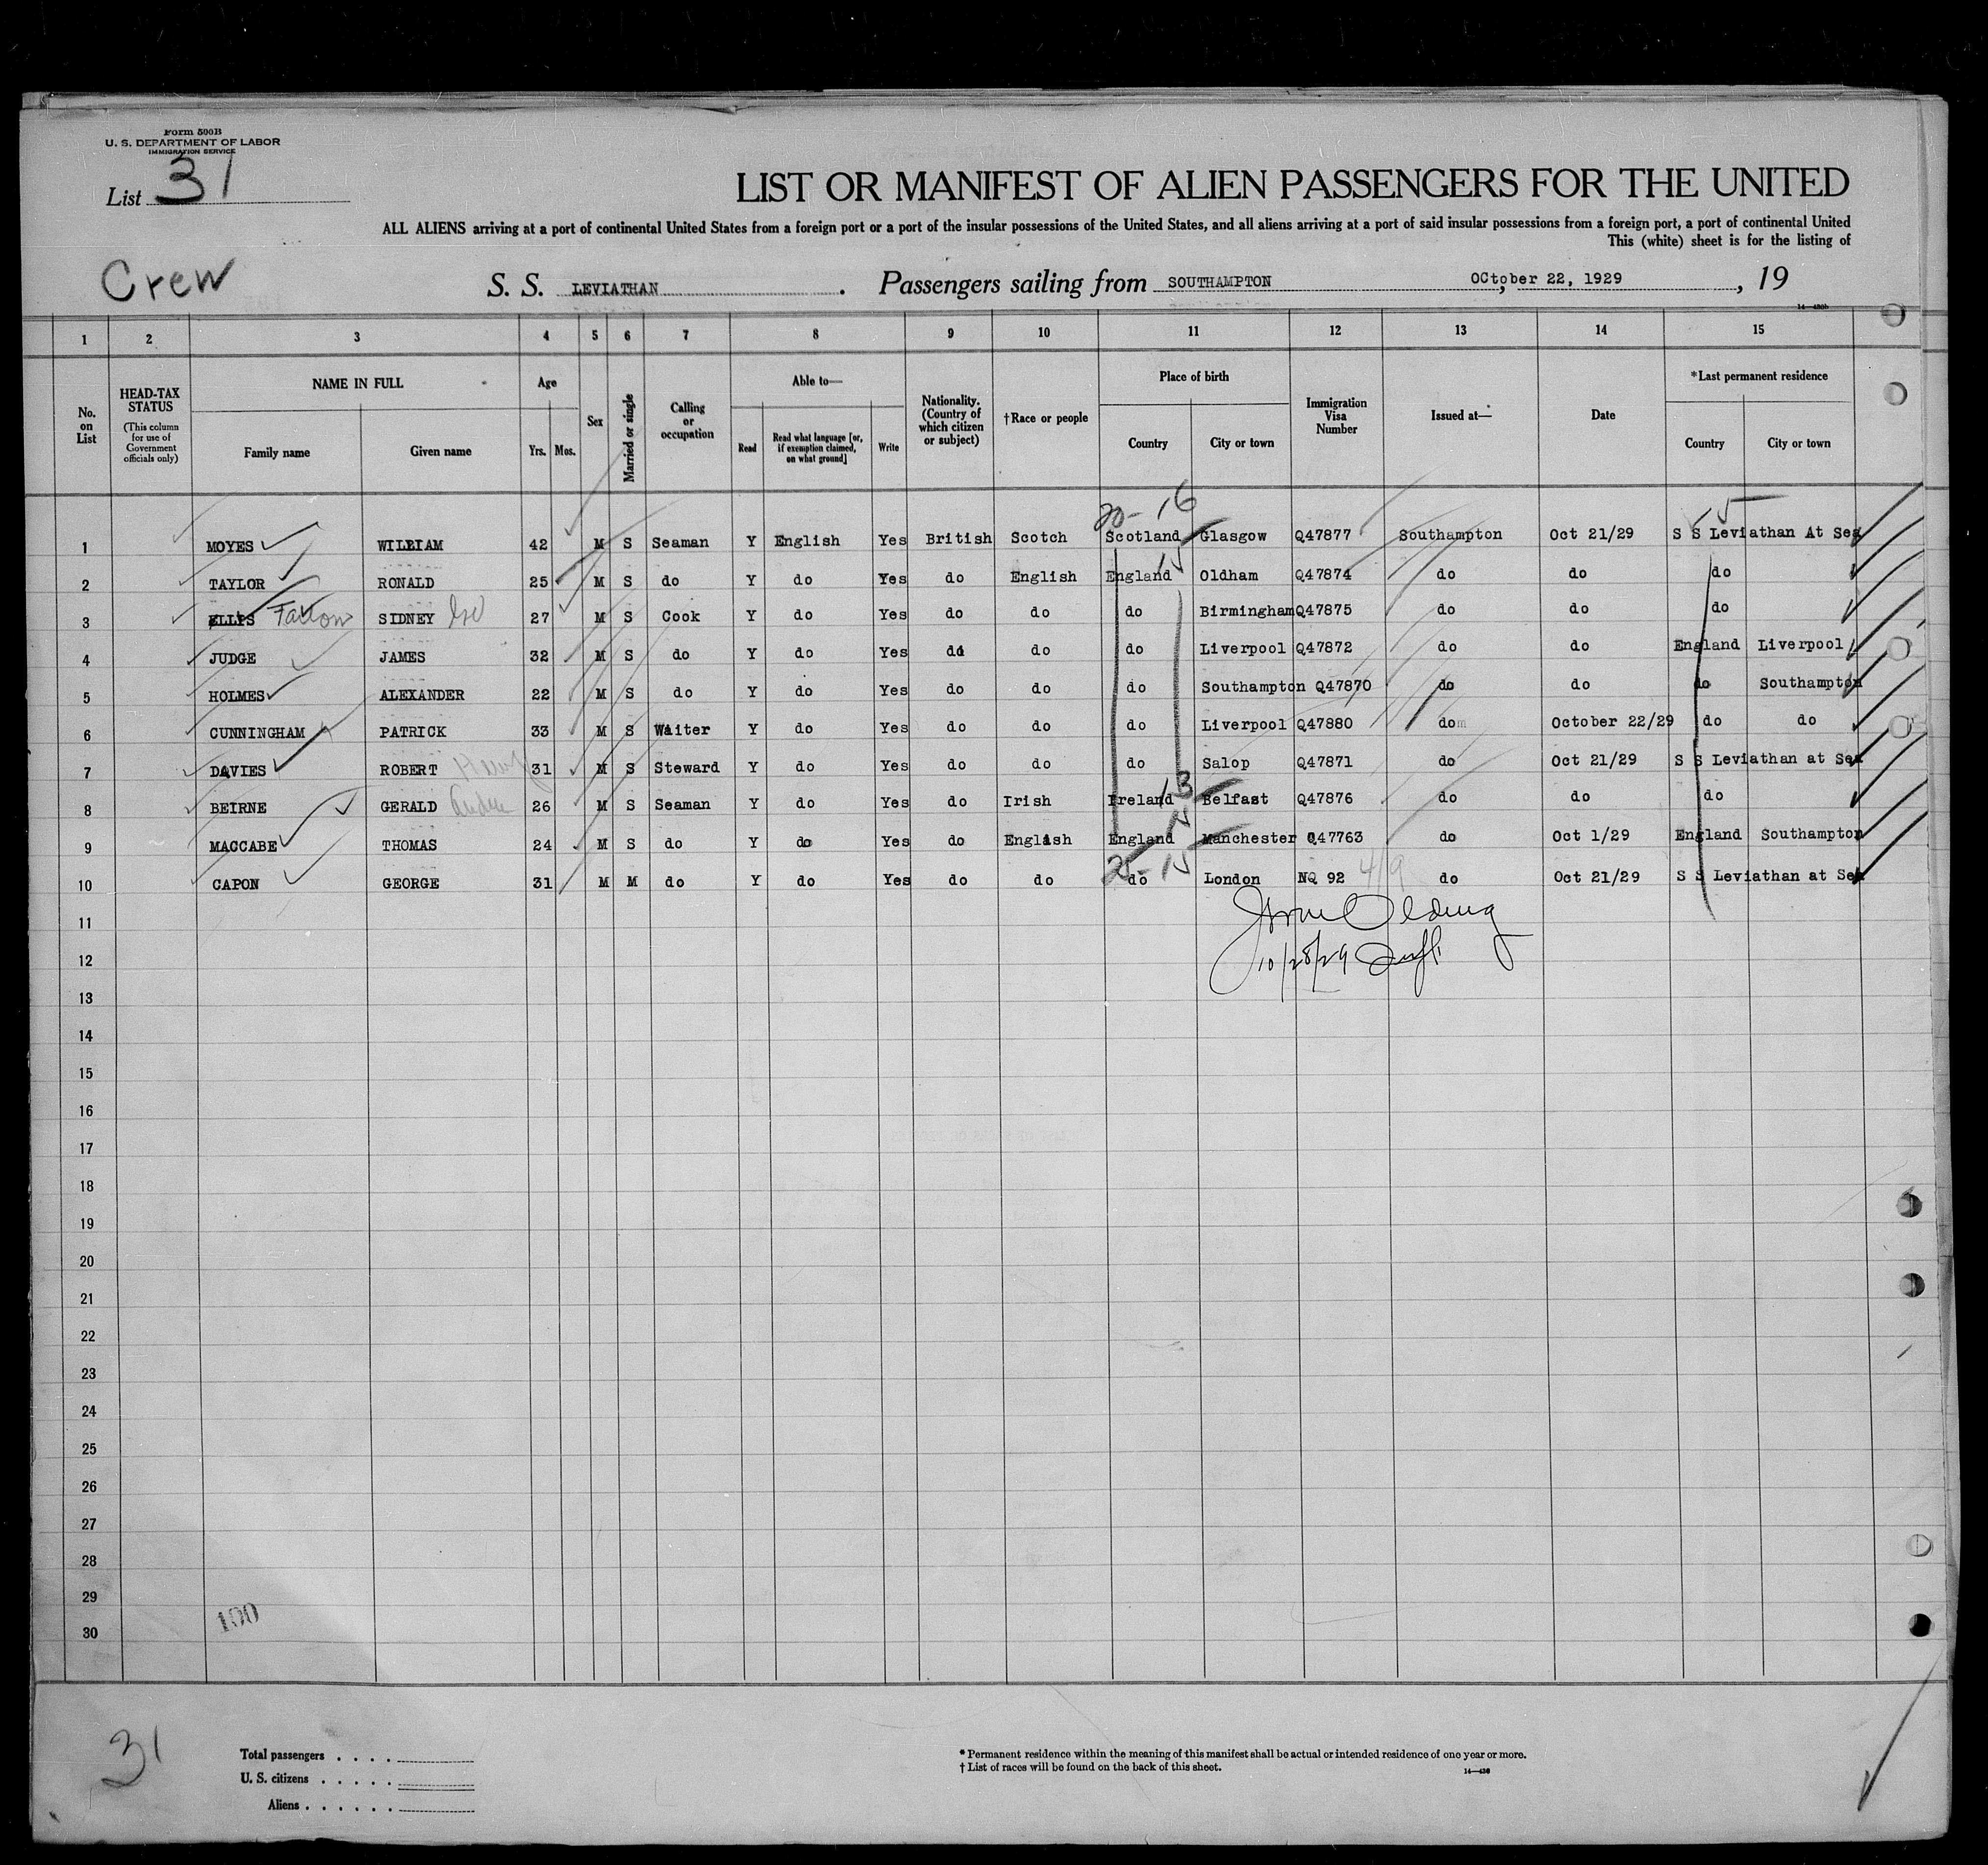 Form 500B
U. S. DEPARTMENT OF LABOR
IMMIGRATION SERVICE
List 31
LIST OR MANIFEST OF ALIEN PASSENGERS FOR THE UNITED
ALL ALIENS arriving at a port of continental United States from a foreign port or a port of the insular possessions of the United States, and all aliens arriving at a port of said insular possessions from a foreign port, a port of continental United
This (white) sheet is for the listing of
Crew
S. S. LEVIATHAN . Passengers sailing from SOUTHAMPTON , OCtober 22, 1929 , 19
1 2 3 4 5 6 7 8 9 10 11 12 13 14 15
No. on List
HEAD-TAX STATUS (This column for use of Government officials only)
NAME IN FULL
Family name Given name
Age
Yrs. Mos.
Sex
Married or single
Calling or occupation
Able to—
Read Read what language [or, if exemption claimed, on what ground] Write
Nationality. (Country of which citizen or subject)
†Race or people
Place of birth
Country City or town
Immigration Visa Number
Issued at—
Date
*Last permanent residence
Country City or town
20-16
1 MOYES WILLIAM 42 M S Seaman Y English Yes British Scotch Scotland Glasgow Q47877 Southampton Oct 21/29 S S Leviathan At Sea
2 TAYLOR RONALD 25 M S do Y do Yes do English England Oldham Q47874 do do do
3 ELLIS SIDNEY 27 M S Cook Y do Yes do do do Birmingham Q47875 do do do
4 JUDGE JAMES 32 M S do Y do Yes do do do Liverpool Q47872 do do England Liverpool
5 HOLMES ALEXANDER 22 M S do Y do Yes do do do Southampton Q47870 do do do Southampton
6 CUNNINGHAM PATRICK 33 M S Waiter Y do Yes do do do Liverpool Q47880 do October 22/29 do do
7 DAVIES ROBERT 31 M S Steward Y do Yes do do do Salop Q47871 do Oct 21/29 S S Leviathan at Sea
8 BEIRNE GERALD 26 M S Seaman Y do Yes do Irish Ireland Belfast Q47876 do do do
9 MACCABE THOMAS 24 M S do Y do Yes do English England Manchester Q47763 do Oct 1/29 England Southampton
10 CAPON GEORGE 31 M M do Y do Yes do do do London NQ 92 4/9 do Oct 21/29 S S Leviathan at Sea
11
10/28/29
12
13
14
15
16
17
18
19
20
21
22
23
24
25
26
27
28
29
30
100
31
Total passengers . . . .
U. S. citizens . . . . .
Aliens . . . . . .
* Permanent residence within the meaning of this manifest shall be actual or intended residence of one year or more.
† List of races will be found on the back of this sheet.